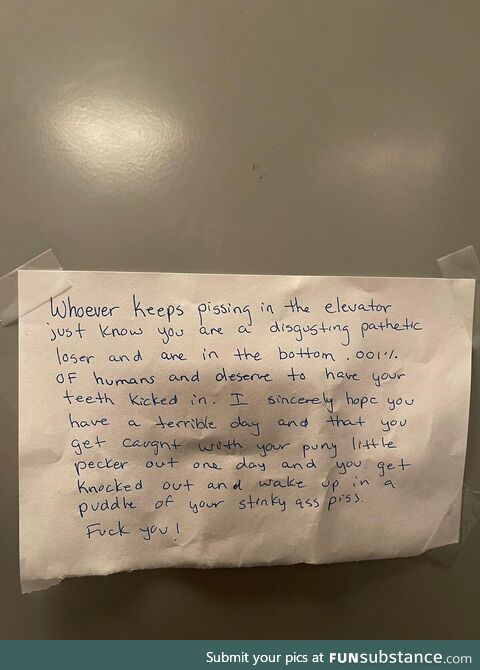 Whoever keeps pissing in the elevator
just know you are a disgusting pathetic
loser and are in the bottom .001%
OF humans and deserve to have your
teeth kicked in. I sincerely hope you
have a terrible day and that you
get caught with your puny little
pecker out one day and you get
knocked out and wake up in a
puddle of your stinky ass piss.
Fuck you!
Submit your pics at FUNsubstance.com